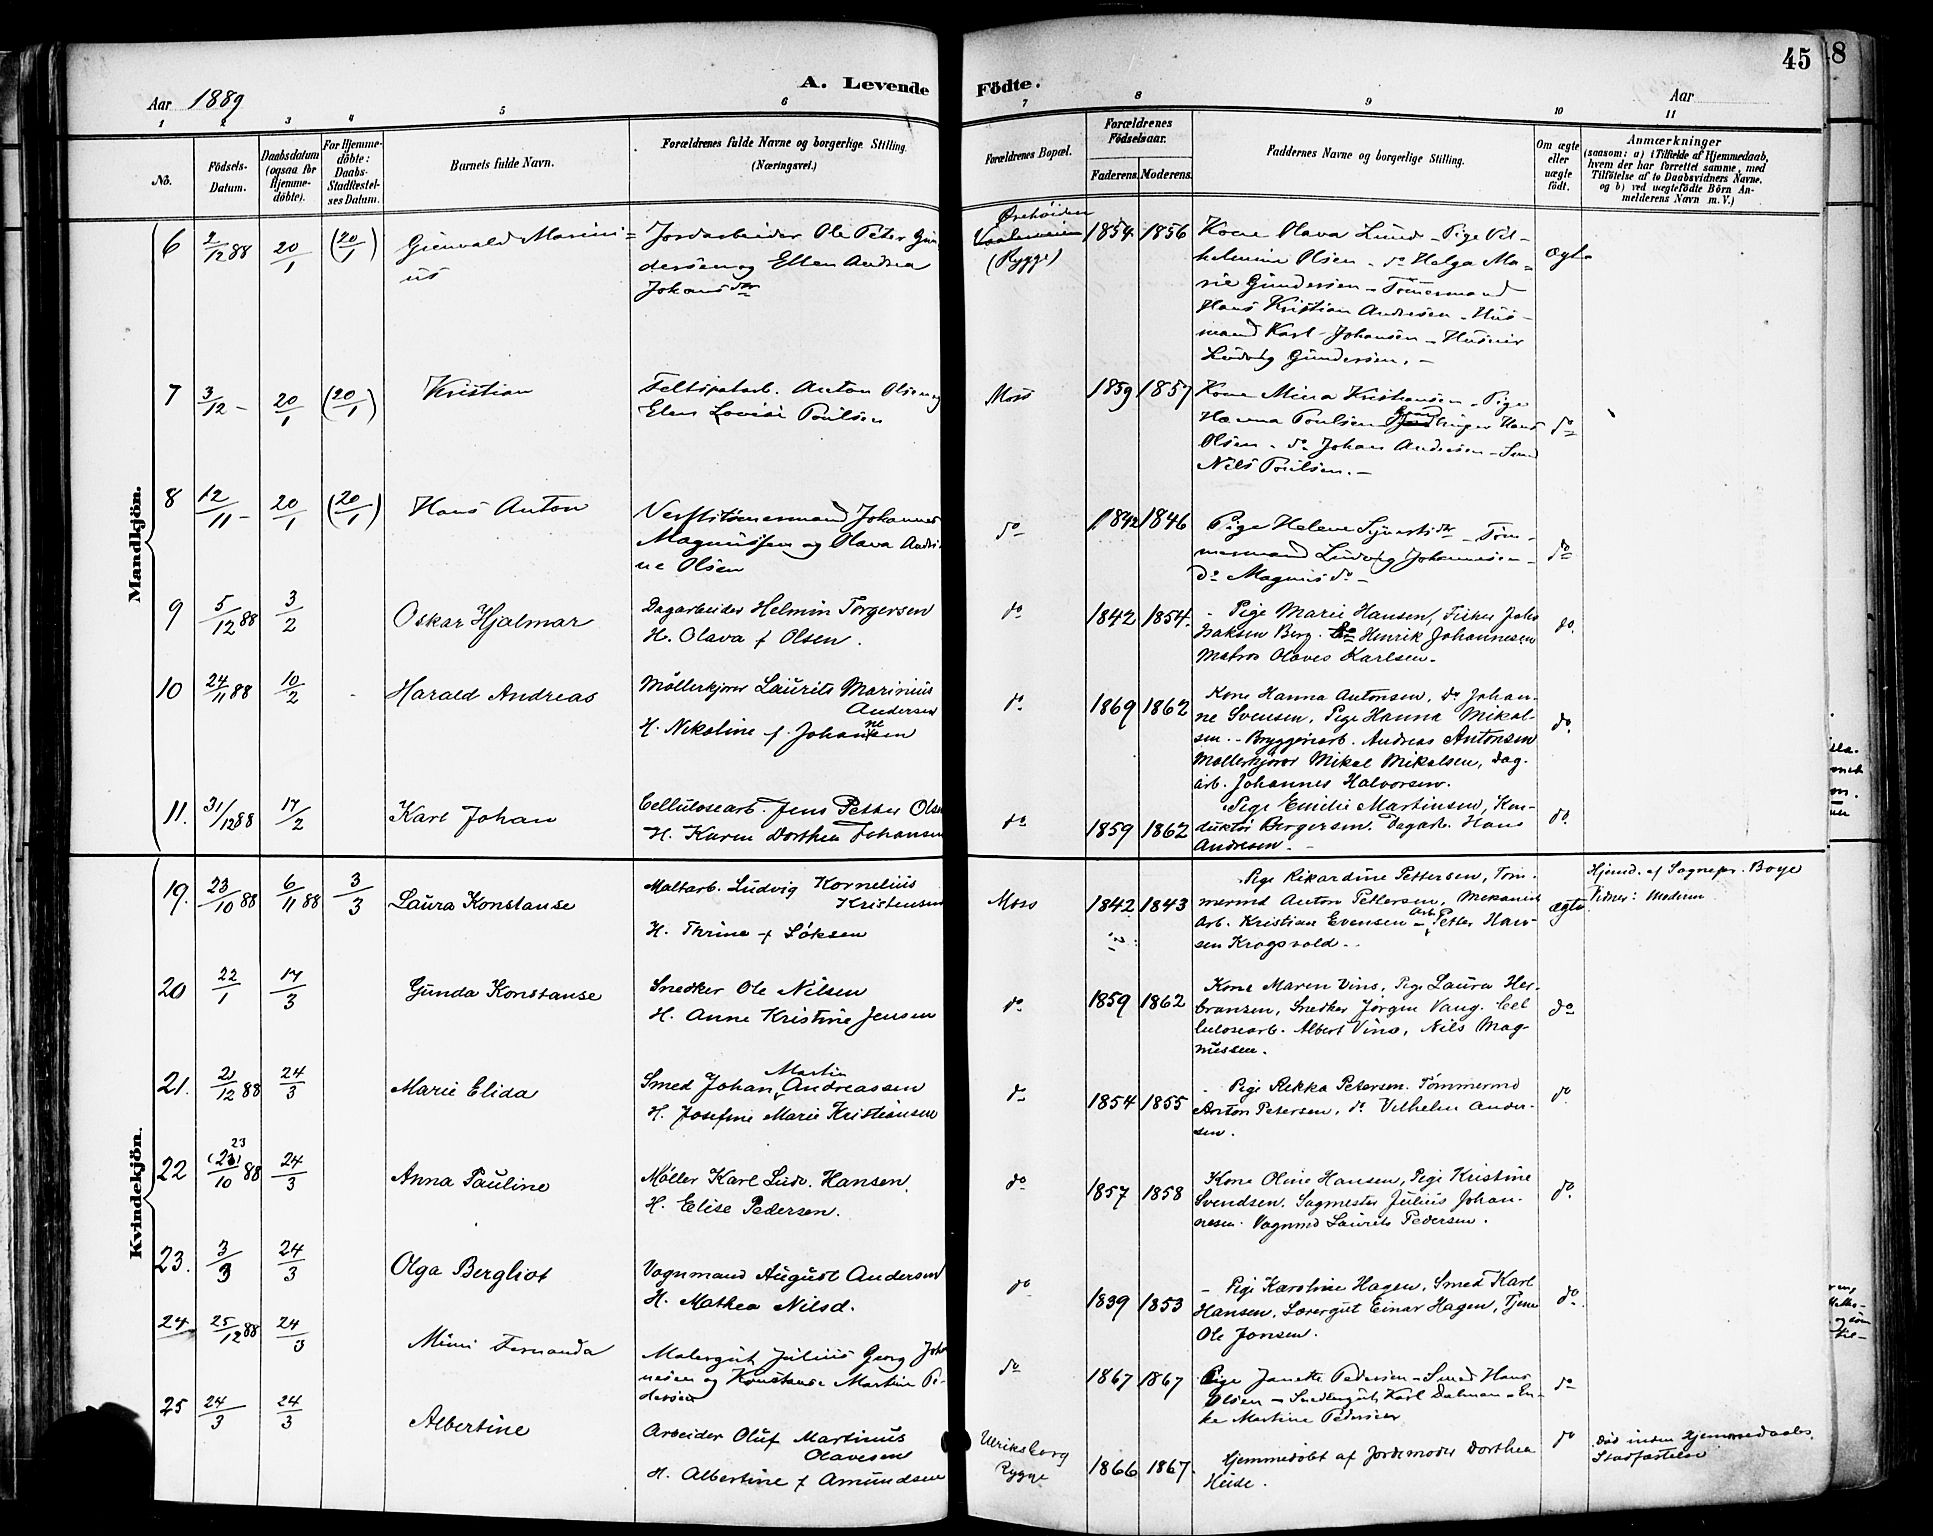 45
8
A. Levende Födte.
Aar 1889
Aar
1 2 3 4 5 6 7 8 9 10 11
No.
Födsels-Datum.
Daabsdatum (ogsaa for Hjemme-döbte).
For Hjemme-döbte: Daabs-Stadfæstel-ses Datum.
Barnets fulde Navn.
Forældrenes fulde Navne og borgerlige Stilling. (Næringsvei.)
Forældrenes Bopæl.
Forældrenes Födselsaar.
Faderens. Moderens.
Faddernes Navne og borgerlige Stilling.
Om ægte eller uægte födt.
Anmærkninger
(saasom: a) i Tilfælde af Hjemmedaab,
hvem der har forrettet samme, med
Tilföielse af to Daabsvidners Navne,
og b) ved uægtefödte Börn An-
melderens Navn m. V.)
Mandkjön.
6 2/12 88 20/1 (20/1) Gunvald Marini=
us
Jordarbeider Ole Peter Gun
dersen og Ellen Andrea
Johansdtr
Ørehöiden
(Rygge)
1854 1856
Kone Olava Lund - Pige Vil-
helmine Olsen - do Helga Ma=
rie Gundersen - Tömermand
Hans Kristian Andresen - Hus-
mand Karl Johansen - Huseier
Ludvig Gundersen. -
ægte
7 3/12 - 20/1 (20/1) Kristian
Feltspatarb. Anton Olsen og
Elen Lovise Poulsen
Moss
1859 1857
Kone Mina Kristiansen - Pige
Hanna Poulsen - Hans
Olsen - do Johan Andresen - Smed
Nils Poulsen. -
do
8 12/11 - 20/1 (20/1) Hans Anton
Verftstömermand Johannes
Magnussen og Olava Andri-
ne Olsen
do
1842 1846
Pige Helene Syvertsdtr - Töm-
mermand Ludvig Johannesen -
do Magnus do -
do
9 5/12 88 3/2 Oskar Hjalmar
Dagarbeider Helmin Torgersen
H. Olava f Olsen.
do
1842 1854.
- Pige Marie Hansen, Fisker Johs
Isaksen Berg. do Henrik Johannesen
Matros Olaves Karlsen.
do.
10 24/11 88 10/2 Harald Andreas
Möllerkjörer Laurits Marinius
Andersen
H. Nikoline f. Johannesen
do
1869 1862
Kone Hanna Antonsen, do Johan-
ne Svensen, Pige Hanna Mikal-
sen. - Bryggeriarb. Andreas Antonsen
Möllerkjörer Mikal Mikalsen, Dag-
arb. Johannes Halvorsen.
do.
11. 31/12 88 17/2 Karl Johan
Cellulosearb. Jens Petter Olsen
H. Karen Dorthea Johansen
do
1859 1862
Pige Emilie Martinsen, Kon-
duktör Bergersen. Dagarb. Hans
Andresen. -
do.
Kvindekjön.
19. 23/10 88 6/11 88 3/3 Laura Konstanse
Maltarb. Ludvig Kornelius
Kristensen
H. Thrine f Löksen
Moss
1842 1843
Pige Rikardine Pettersen, Töm-
mermd Anton Pettersen, Mekanisk
Arb. Kristian Evensen - Arb. Petter Han-
sen Krogsvold. -
ægte
Hjemd. af Sognepr. Boye
Vidner:
20 22/1 17/3 Gunda Konstanse
Snedker Ole Nilsen
H. Anne Kristine Jensen
do
1859 1862
Kone Maren Vins, Pige Laura Her-
bransen, Snedker Jörgen Vang. Cel-
lulosearb. Albert Vins, Nils Mag-
nussen.
do
21. 21/12 88 24/3 Marie Elida
Smed Johan Martin Andreassen
H. Josefine Marie Kristiansen
do
1854 1855
- Pige Rikka Petersen. Tömmermd
Anton Petersen, do Vilhelm Ander-
sen.
do
22 23/10 88 24/3 Anna Pauline
Möller Karl Ludv. Hansen.
H. Elise Pedersen.
do
1857 1858
Kone Oline Hansen, Pige Kristine
Svendsen. Sagmester Julius Johan-
nesen. Vognmd Laurits Pedersen.
do.
23. 3/3 24/3 Olga Bergliot
Vognmand August Andersen
H. Mathea Nilsd.
do
1839 1853
- Pige Karoline Hagen, Smed Karl
Hansen, Lærergut Einar Hagen, Tjener
Ole Jonsen.
do.
24 25/12 88 24/3 Mimi Fernanda
Malergut Julius Georg Joha
nesen og Konstanse Martine Pe-
dersen
do
1867 1867
Pige Janette Pedersen - Smed Hans
Olsen - Snedkergut Karl Dalman - En-
ke Martine Pedersen
do
25 24/3 24/3 Albertine
Arbeider Oluf Martinus
Olavesen
H. Albertine f Amundsen
Ulriksborg
Rygge
1866 1867.
Hjemmedöbt af Jordemoder Dorthea
Heide.
do
Död inden Hjemmedaabs
Stadfæstelse